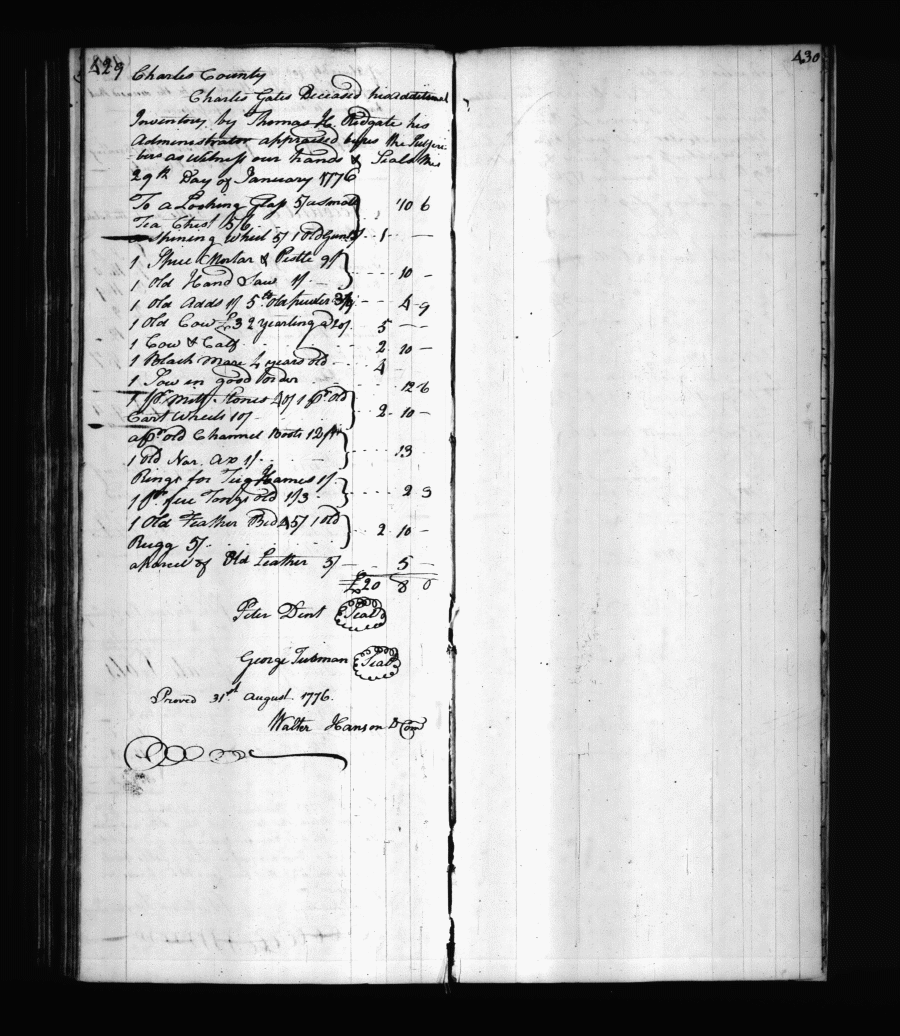 429
430
Charles County
Charles Gates Deceased his additional
Inventory by Thomas H. Ridgate his
Administrator appraised by us the Subscri-
bers as witness our hands & Seals this
29th Day of January 1776
To a Looking Glass 5/ a small
Tea Chest 5/6 10 6
a Spining Wheel 5/ 1 old 1 — —
1 Spice Mortar & Pestle 9/
1 Old Hand Saw 1/ 10 —
1 Old Adds 1/ 5 lb old pewter 3/9 4 9
1 Old Cow £3 2 yearlings a 20/ 5 — —
1 Cow & Calf 2 10 —
1 Black Mare 4 years old 4
1 Sow in good order 12 6
1 pr. Mill Stones 40/ 1 pr. old
Cart Wheels 10/ 2 10 —
a pr. old Channel Boots 12/
1 Old Nar. Ax 1/ 13
Rings for Tug Hames 1/
1 pr. fire Tongs old 1/3 2 3
1 Old Feather Bed 45/ 1 old
Rugg 5/ 2 10 —
a Parcel of Old Leather 5/ 5 —
£20 8 0
Peter Dent Seal
George Tubman Seal
Proved 31st August 1776.
Walter Hanson D Com